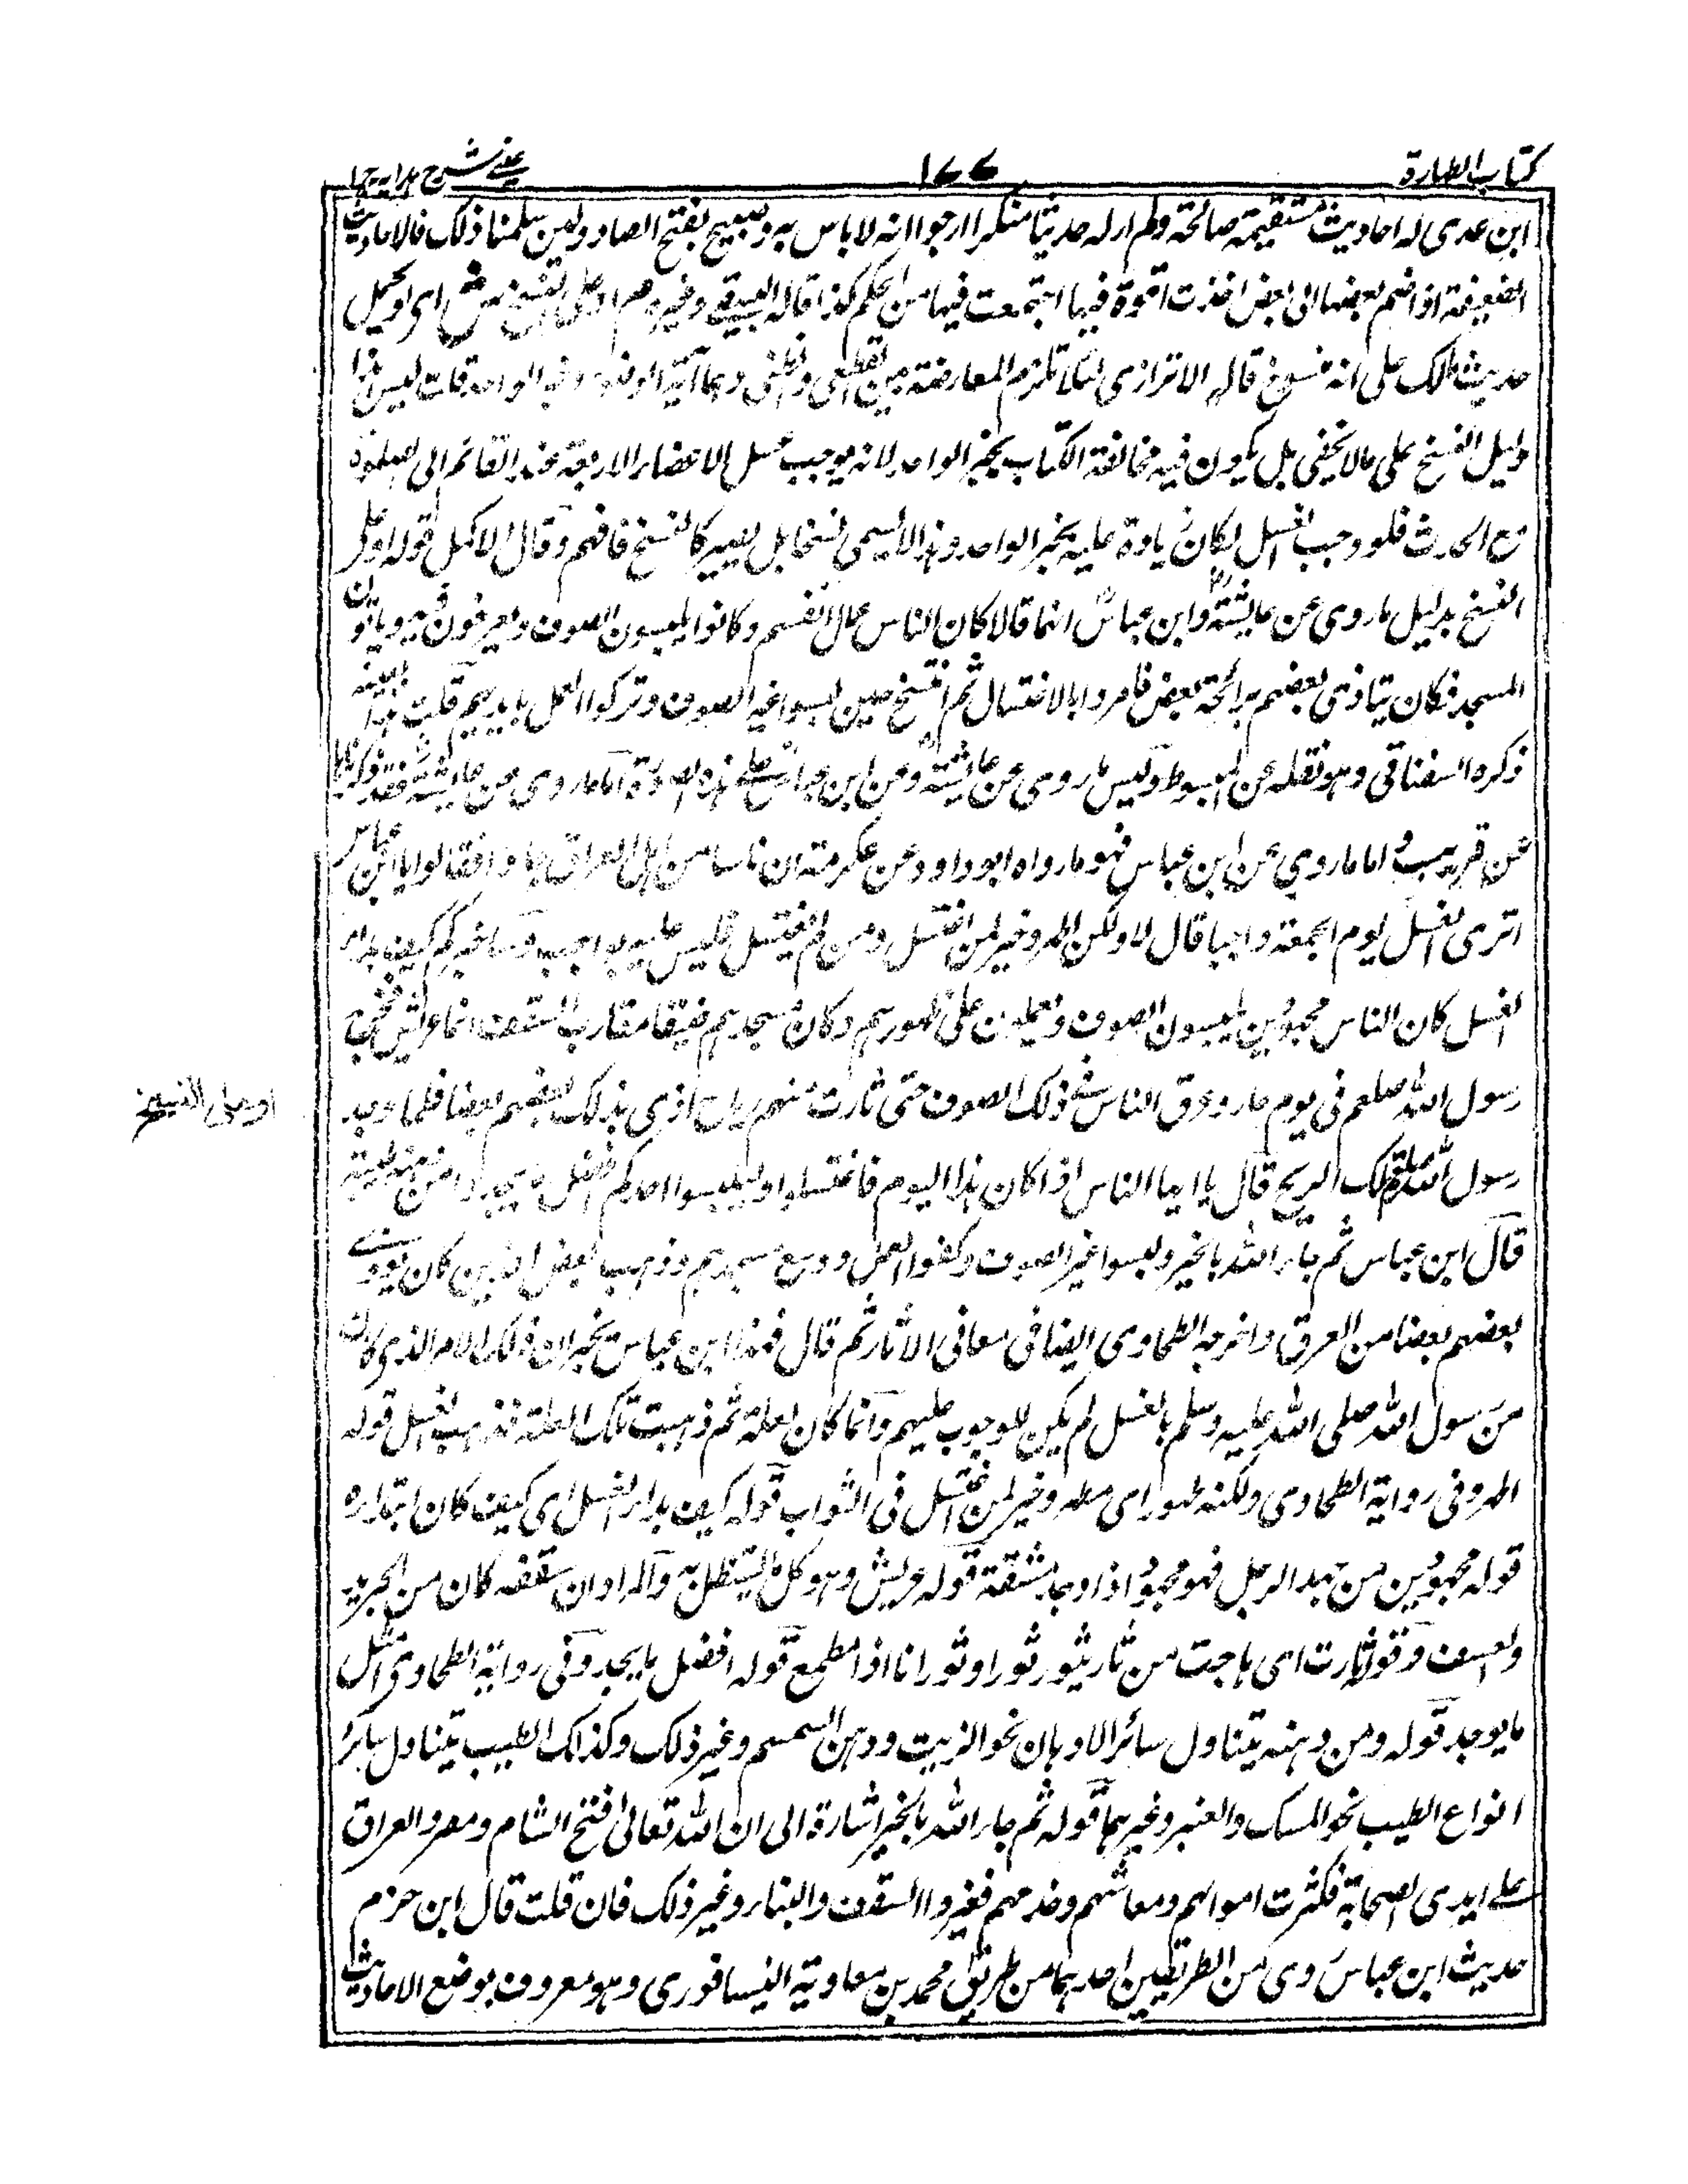 كتاب الطهارة
١٧٧
عينى شرح هداية ج١
ابن عدى له احاديث مستقيمة صالحة ولم ار له حديثا منكرا ارجو انه لا باس به وصبيح بفتح الصاد ولئن سلمنا ذلك فالاحاديث
الضعيفة اذا ضم بعضها الى بعض اخذت قوة فيما اجتمعت فيها من الحكم كذا قاله البيهقى وغيره م او على النسخ ش اى او يحمل
حديث مالك على انه منسوخ قاله الاترازى لئلا تلزم المعارضة بين القطعى والظنى وهما آية الوضوء وخبر الواحد قلت ليس هذا
دليل النسخ على ما لا يخفى بل يكون فيه مخالفة الكتاب بخبر الواحد لانه يوجب غسل الاعضاء الاربعة عند القائم الى الصلوة
مع الحدث فلو وجب الغسل لكان زيادة عليه بخبر الواحد وهذا لا يسمى نسخا بل يصير كالنسخ فافهم وقال الاكمل قوله او على
النسخ بدليل ما روى عن عايشة وابن عباس انهما قالا كان الناس عمال انفسهم وكانوا يلبسون الصوف ويعرقون فيه وياتون
المسجد فكان يتاذى بعضهم برائحة بعض فامروا بالاغتسال ثم انتسخ حين لبسوا غير الصوف وتركوا العمل بايديهم قلت هذا بعينه
ذكره السغناقى وهو نقله عن المبسوط وليس ما روى عن عايشة وعن ابن عباس على هذه الصورة اما ما روى عن عايشة فقد ذكرناها
عن قريب واما ما روى عن ابن عباس فهو ما رواه ابو داود عن عكرمة ان ناسا من اهل العراق جاوا فقالوا يا ابن عباس
اترى الغسل يوم الجمعة واجبا قال لا ولكن اطهر وخير لمن اغتسل ومن لم يغتسل فليس عليه بواجب وساخبركم كيف بداء
الغسل كان الناس مجهودين يلبسون الصوف ويعملون على ظهورهم وكان مسجدهم ضيقا مقارب السقف انما هو عريش فخرج
رسول الله صلعم فى يوم حار وعرق الناس فى ذلك الصوف حتى ثارت منهم رياح اذى بذلك بعضهم بعضا فلما وجد
رسول الله صلعم تلك الريح قال يا ايها الناس اذا كان هذا اليوم فاغتسلوا وليلبسوا احدكم افضل ما يجد من دهنه وطيبه
قال ابن عباس ثم جاء الله بالخير ولبسوا غير الصوف وكفوا العمل ووسع مسجدهم وذهب بعض الذين كان يوذى
بعضهم بعضا من العرق واخرجه الطحاوى ايضا فى معانى الاثار ثم قال فهذا ابن عباس يخبر ان ذلك الامر الذى كان
من رسول الله صلى الله عليه وسلم بالغسل لم يكن للوجوب عليهم وانما كان لعلة ثم ذهبت تلك العلة فذهب الغسل قوله
اطهر وفى رواية الطحاوى ولكنه طهور اى مطهر وخير لمن اغتسل فى الثواب قوله كيف بداء الغسل اى كيف كان ابتداءه
قوله مجهودين من جهد الرجل فهو مجهود اذا وجد مشقة قوله عريش وهو كل ما يستظل به والمراد ان سقفه كان من الجريد
والسعف وقوله ثارت اى هاجت من ثار يثور ثورا وثورانا اذا سطع قوله افضل ما يجد وفى رواية الطحاوى امثل
ما يوجد قوله ومن دهنه يتناول سائر الادهان نحو الزيت ودهن السمسم وغير ذلك وكذلك الطيب يتناول سائر
انواع الطيب نحو المسك والعنبر وغيرهما قوله ثم جاء الله بالخير اشارة الى ان الله تعالى فتح الشام ومصر والعراق
على ايدى الصحابة فكثرت اموالهم ومعاشهم وخدمهم فغيروا السقوف والبناء وغير ذلك فان قلت قال ابن حزم
حديث ابن عباس روى من الطريقين احدهما من طريق محمد بن معاوية النيسافورى وهو معروف بوضع الاحاديث
او على النسخ